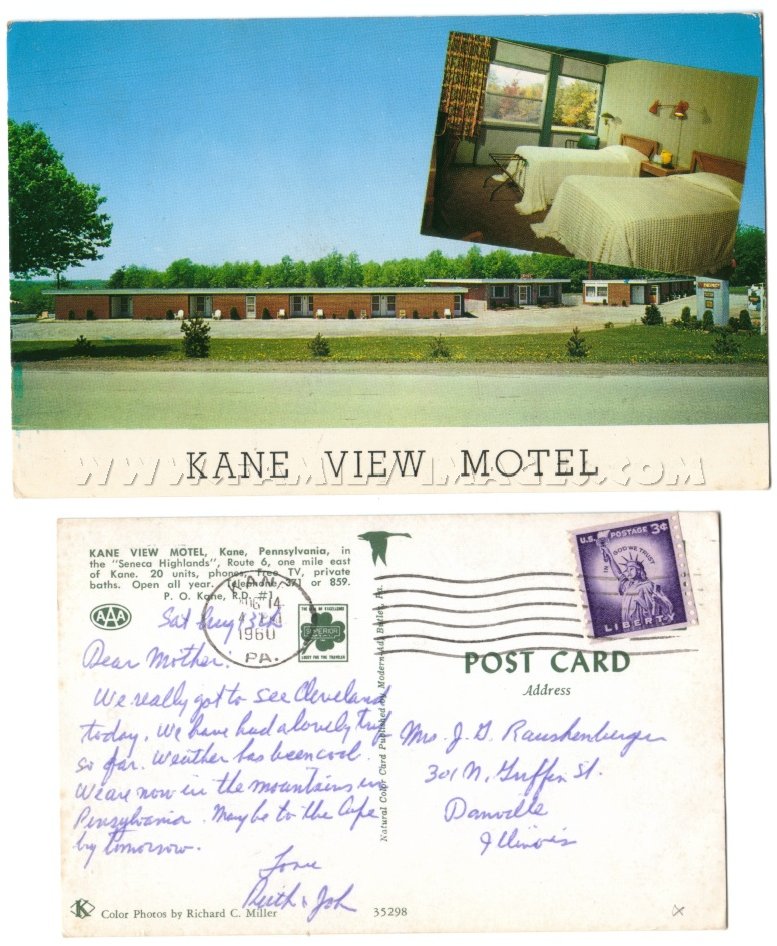 KANE VIEW MOTEL
WWW.FAMILY-IMAGES.COM
KANE VIEW MOTEL, Kane, Pennsylvania, in
the "Seneca Highlands", Route 6, one mile east
of Kane. 20 units, phones, free TV, private
baths. Open all year. Telephone 371 or 859.
P. O. Kane, R.D. #1
AAA
SUPERIOR
KANE
AUG 14
1960
PA.
Sat Aug 13th
Dear Mother:
We really got to see Cleveland
today. We have had a lovely trip
so far. Weather has been cool.
We are now in the mountains in
Pensylvania. Maybe to the Cape
by tomorrow.
Love
Ruth & Joh
K
Color Photos by Richard C. Miller
35298
Natural Color Card Published by Modern-Ad, Butler, Pa.
U.S. POSTAGE 3¢
IN GOD WE TRUST
LIBERTY
POST CARD
Address
Mrs. J. G. Raushenberger
301 N. Griffin St.
Danville
Illinois